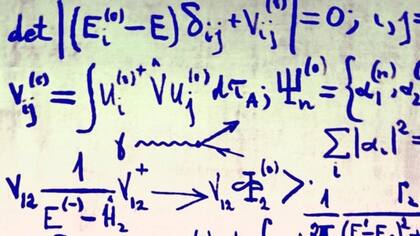 det |(E_i^(0) - E) δ_ij + V_ij^(0)| = 0; i, j =
V_ij^(0) = ∫ U_i^(0)+ V̂ U_j^(0) dτ_A; Ψ_n^(0) = {α_1^(n), α_2
γ Σ_i |α_i|² =
V_12 1/(E^(-) - Ĥ_2) V_12^+ → V_12 Φ_2^(0) >. 1/2π Γ_2/(E'-E_2)²